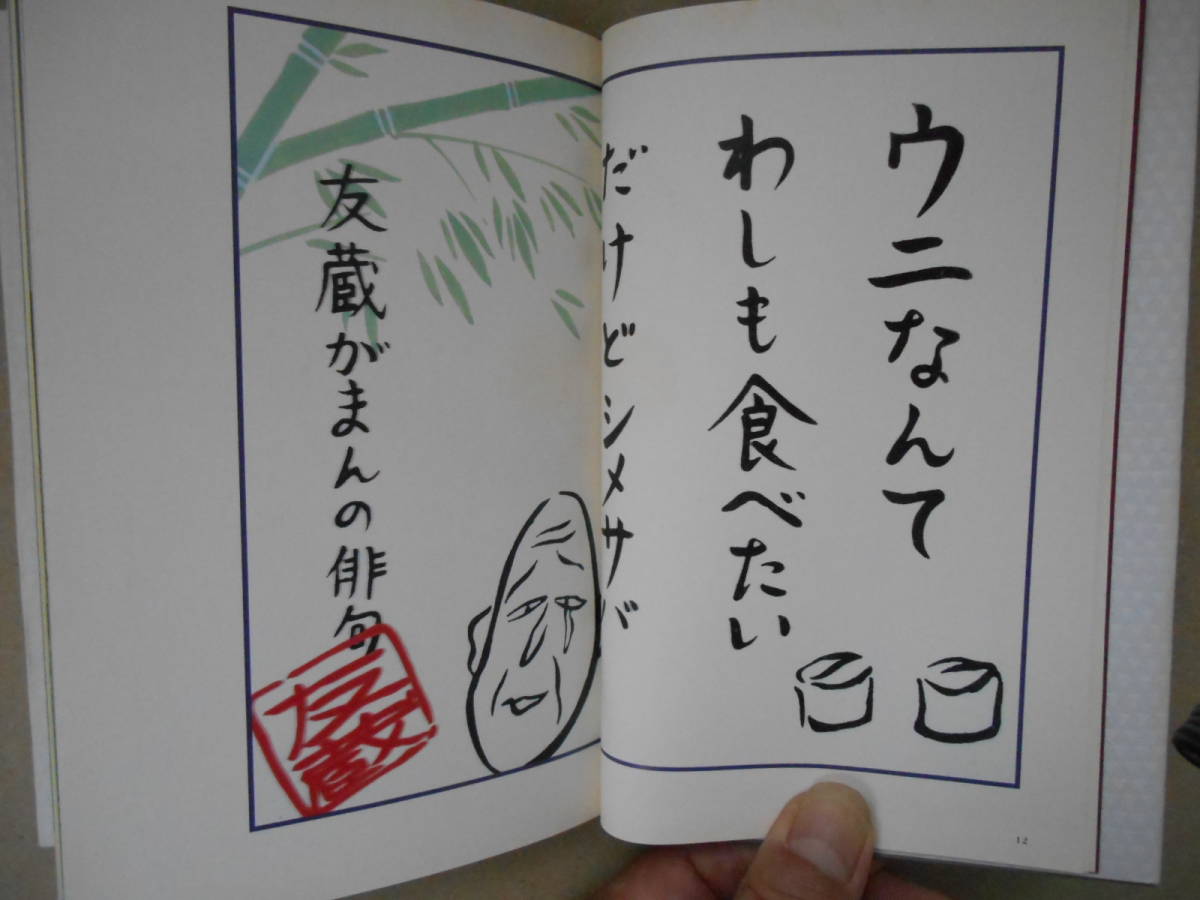 ウニなんて
わしも食べたい
だけどシメサバ
友蔵がまんの俳句
友蔵
12